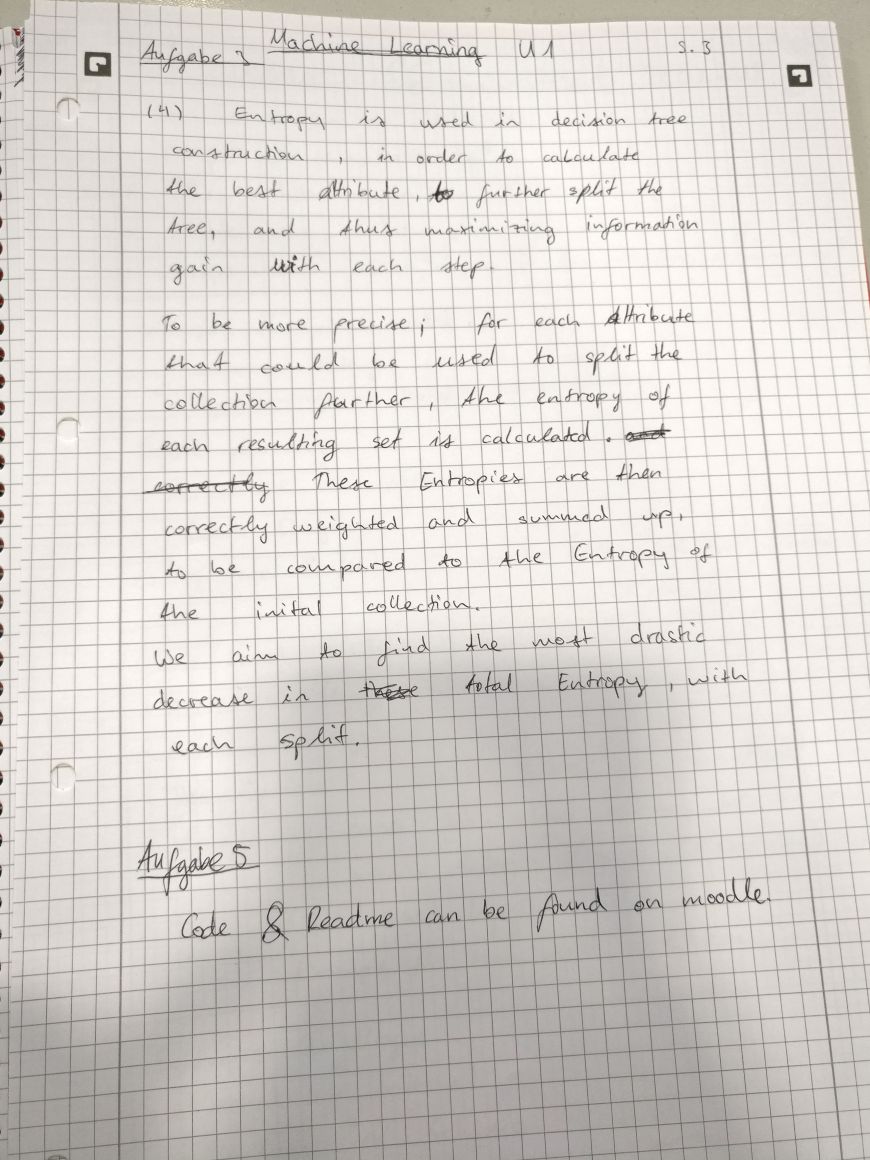 Machine Learning U1 S. 3
Aufgabe 3
(4) Entropy is used in decision tree
construction, in order to calculate
the best attribute, to further split the
tree, and thus maximizing information
gain with each step.
To be more precise; for each Attribute
that could be used to split the
collection further, the entropy of
each resulting set is calculated. and
correctly These Entropies are then
correctly weighted and summed up,
to be compared to the Entropy of
the inital collection.
We aim to find the most drastic
decrease in these total Entropy, with
each split.
Aufgabe 5
Code & Readme can be found on moodle.